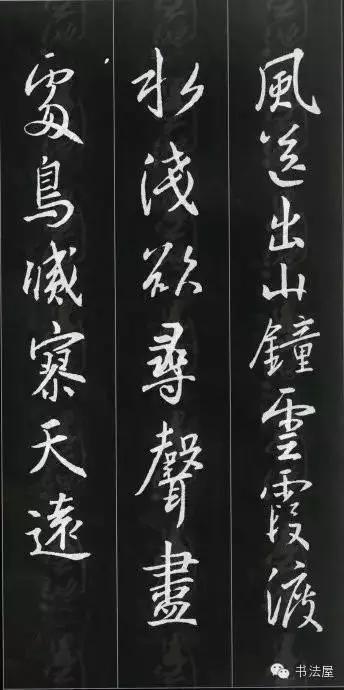 風送出山鐘雲霞渡
水淺欲尋聲盡
處鳥滅寥天遠
书法屋